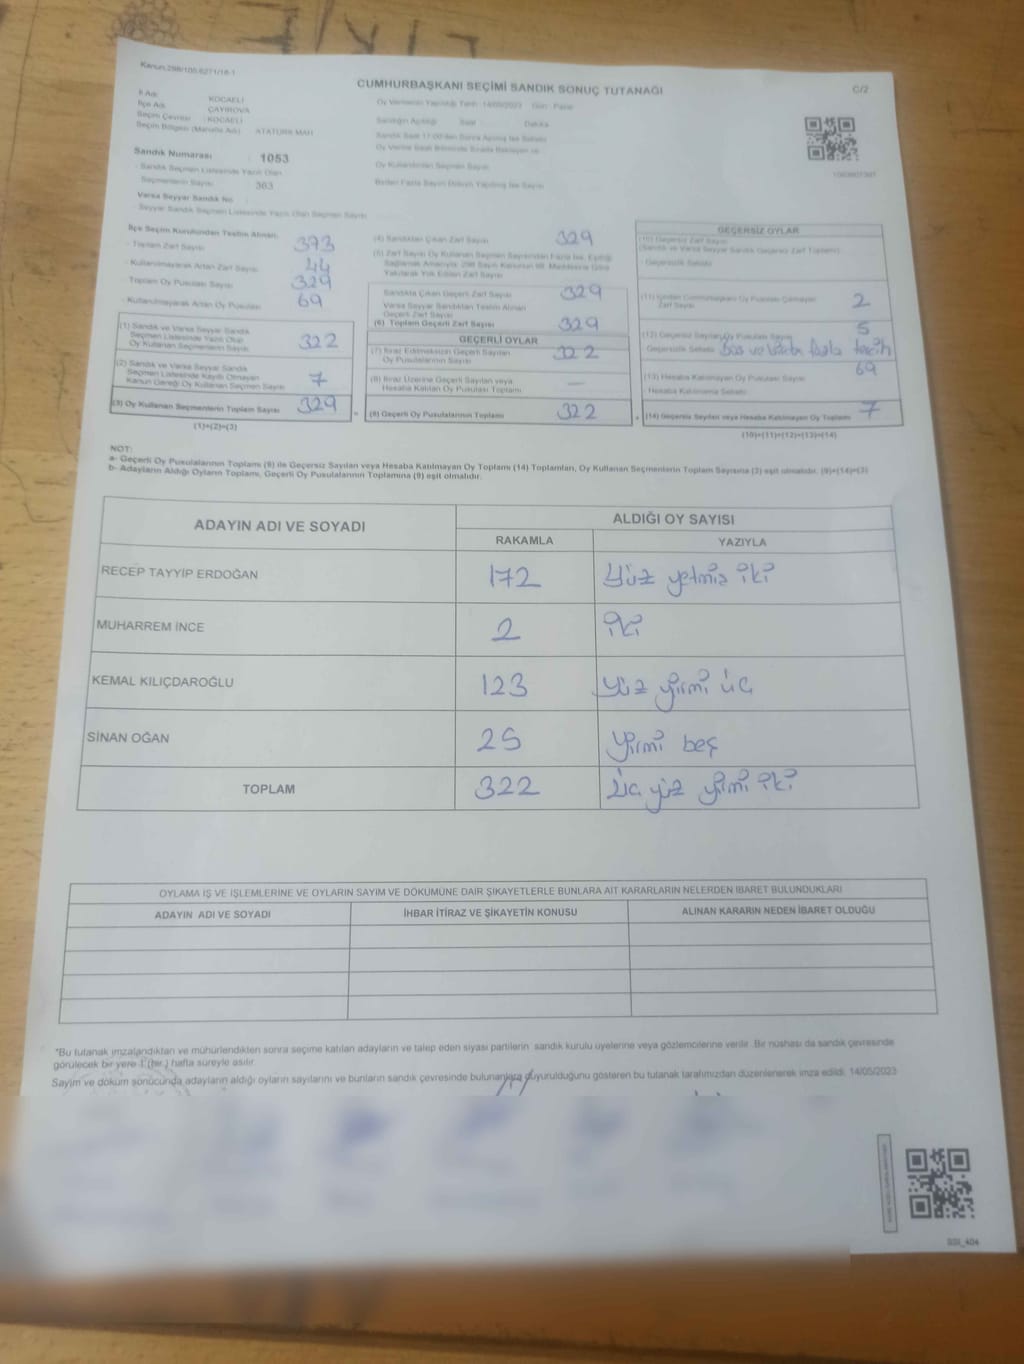 Kanun:298/105,6271/18-1
CUMHURBAŞKANI SEÇİMİ SANDIK SONUÇ TUTANAĞI
C/2
İl Adı: KOCAELİ
İlçe Adı: ÇAYIROVA
Seçim Çevresi: KOCAELİ
Seçim Bölgesi (Mahalle Adı): ATATÜRK MAH
Sandık Numarası: 1053
- Sandık Seçmen Listesinde Yazılı Olan
Seçmenlerin Sayısı: 363
Varsa Seyyar Sandık No
- Seyyar Sandık Seçmen Listesinde Yazılı Olan Seçmen Sayısı
Oy Vermenin Yapıldığı Tarih: 14/05/2023 Gün: Pazar
Sandığın Açıldığı Saat Dakika
Oy Kullandırılan Seçmen Sayısı
İlçe Seçim Kurulundan Teslim Alınan:
- Toplam Zarf Sayısı 373
- Kullanılmayarak Artan Zarf Sayısı 44
Toplam Oy Pusulası Sayısı 329
- Kullanılmayarak Artan Oy Pusulası 69
(1) Sandık ve Varsa Seyyar Sandık
Seçmen Listesinde Yazılı Olup
Oy Kullanan Seçmenlerin Sayısı 322
(2) Sandık ve Varsa Seyyar Sandık
Seçmen Listesinde Kayıtlı Olmayan
Kanun Gereği Oy Kullanan Seçmen Sayısı 7
(3) Oy Kullanan Seçmenlerin Toplam Sayısı 329
(1)+(2)=(3)
(4) Sandıktan Çıkan Zarf Sayısı 329
(5) Zarf Sayısı Oy Kullanan Seçmen Sayısından Fazla İse, Eşitliği
Sağlamak Amacıyla 298 Sayılı Kanunun 98. Maddesine Göre
Yakılarak Yok Edilen Zarf Sayısı
Sandıkta Çıkan Geçerli Zarf Sayısı 329
Varsa Seyyar Sandıktan Teslim Alınan
Geçerli Zarf Sayısı
(6) Toplam Geçerli Zarf Sayısı 329
GEÇERLİ OYLAR
(7) İtiraz Edilmeksizin Geçerli Sayılan
Oy Pusulalarının Sayısı 322
(8) İtiraz Üzerine Geçerli Sayılan veya
Hesaba Katılan Oy Pusulası Toplamı —
(9) Geçerli Oy Pusulalarının Toplamı 322
GEÇERSİZ OYLAR
(10) Geçersiz Zarf Sayısı
(Sandık ve Varsa Seyyar Sandık Geçersiz Zarf Toplamı)
- Geçersizlik Sebebi
(11) İçinden Cumhurbaşkanı Oy Pusulası Çıkmayan
Zarf Sayısı 2
(12) Geçersiz Sayılan Oy Pusulası Sayısı 5
Geçersizlik Sebebi Boş ve fazla tercih
69
(13) Hesaba Katılmayan Oy Pusulası Sayısı
- Hesaba Katılmama Sebebi
(14) Geçersiz Sayılan veya Hesaba Katılmayan Oy Toplamı 7
(10)+(11)+(12)+(13)=(14)
NOT:
a- Geçerli Oy Pusulalarının Toplamı (9) ile Geçersiz Sayılan veya Hesaba Katılmayan Oy Toplamı (14) Toplamları, Oy Kullanan Seçmenlerin Toplam Sayısına (3) eşit olmalıdır. (9)+(14)=(3)
b- Adayların Aldığı Oyların Toplamı, Geçerli Oy Pusulalarının Toplamına (9) eşit olmalıdır.
ADAYIN ADI VE SOYADI
ALDIĞI OY SAYISI
RAKAMLA YAZIYLA
RECEP TAYYİP ERDOĞAN 172 Yüz yetmiş iki
MUHARREM İNCE 2 iki
KEMAL KILIÇDAROĞLU 123 yüz yirmi üç
SİNAN OĞAN 25 Yirmi beş
TOPLAM 322 üç yüz yirmi iki
OYLAMA İŞ VE İŞLEMLERİNE VE OYLARIN SAYIM VE DÖKÜMÜNE DAİR ŞİKAYETLERLE BUNLARA AİT KARARLARIN NELERDEN İBARET BULUNDUKLARI
ADAYIN ADI VE SOYADI İHBAR İTİRAZ VE ŞİKAYETİN KONUSU ALINAN KARARIN NEDEN İBARET OLDUĞU
*Bu tutanak imzalandıktan ve mühürlendikten sonra seçime katılan adayların ve talep eden siyasi partilerin sandık kurulu üyelerine veya gözlemcilerine verilir. Bir nüshası da sandık çevresinde
görülecek bir yere 1 (bir) hafta süreyle asılır.
Sayım ve döküm sonucunda adayların aldığı oyların sayılarını ve bunların sandık çevresinde bulunanlara duyurulduğunu gösteren bu tutanak tarafımızdan düzenlenerek imza edildi. 14/05/2023